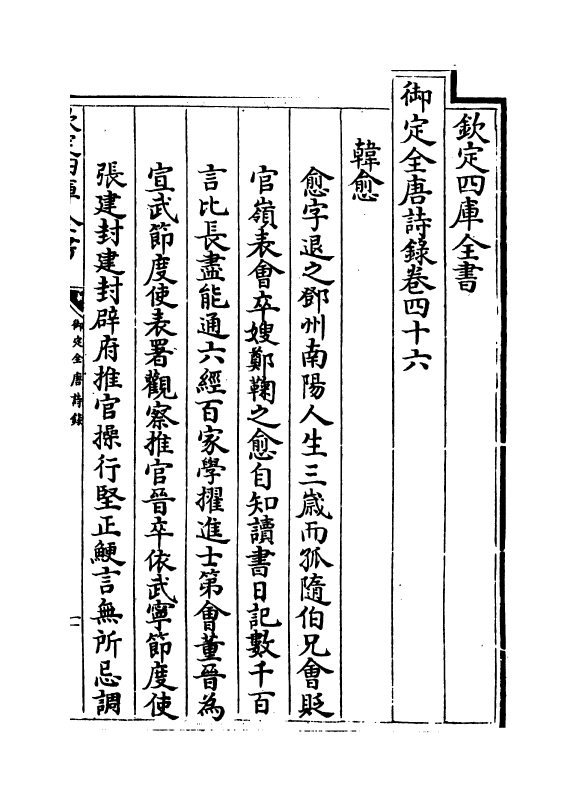 欽定四庫全書
御定全唐詩錄卷四十六
韓愈
愈字退之鄧州南陽人生三歲而孤隨伯兄會貶
官嶺表會卒嫂鄭鞠之愈自知讀書日記數千百
言比長盡能通六經百家學擢進士第會董晉為
宣武節度使表署觀察推官晉卒依武寧節度使
張建封建封辟府推官操行堅正鯁言無所忌調
御定全唐詩錄